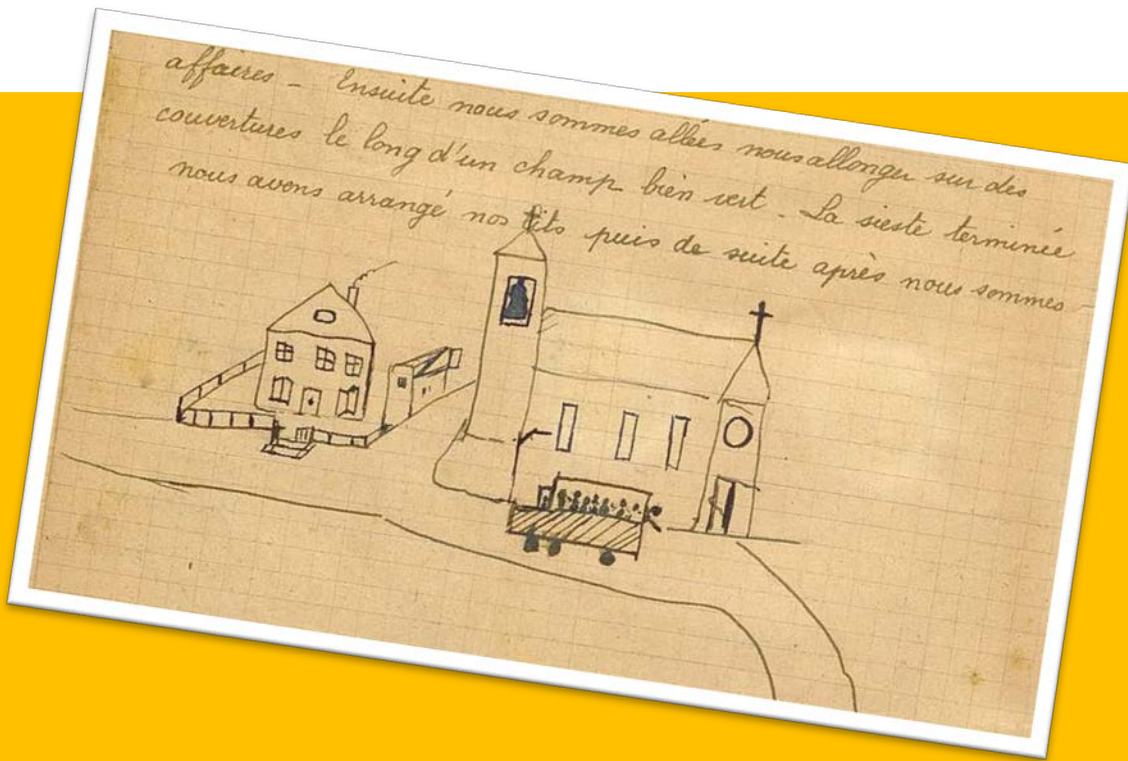 affaires - Ensuite nous sommes allées nous allonger sur des
couvertures le long d'un champ bien vert - La sieste terminée
nous avons arrangé nos lits puis de suite après nous sommes -